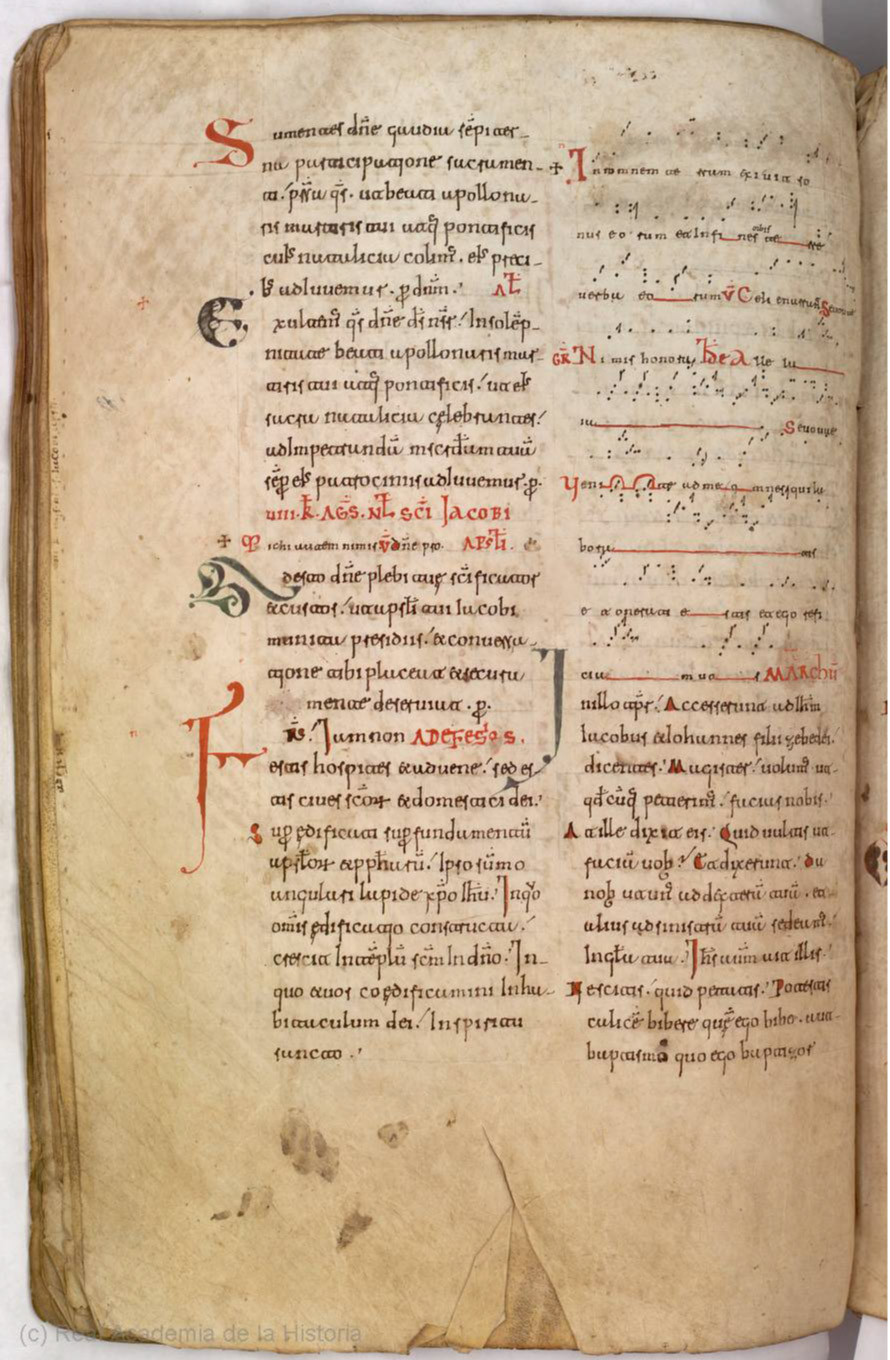 Sumentes dne gaudia sepiter
na participatione sacramen
ta. psta qs. ut beati apollona
ris martiris tui atq pontificis
cuis natalicia colim. eis preci
b adiuuemur. p dnm. AL
Exultem qs dne ds nr. In solep
nitate beati apollonaris mar
tiris tui atq pontificis. ut ei
sacra natalicia celebrantes.
ad impetranda mscdam tuam
sep ei patrociniis adiuuemur. p.
VIII. K. AGS. NL SCI IACOBI
Michi autem nimis V Dne pro. APSLI.
Adesto dne plebi tue scificator
et custos. ut apsli tui iacobi
munita presidiis. et conuersa
tione tibi placeat et secura
mente deseruiat. p.
Frs. Iam non AD EFESIOS.
estis hospites et aduene. sed es
tis ciues scor et domestici dei.
Sup edificati sup fundamentu
apstlor et pphetaru. Ipso sumo
angulari lapide xpo ihu. In quo
omis edificatio constructa.
crescit In teplu scm In dno. In
quo et uos coedificamini In ha
bitaculum dei. In spiritu
sancto.
In omnem te rram exiuit so
nus eorum et In fi nes orbis te rre
uerba eo rum V Celi enarrant Seuouae
GR Nimis honorati V De A lle lu
ia Seuouae
Venite ad me omnes qui la
boratis
et onerati e stis et ego refi
cia m uo s MARCHU
In illo tpr. Accesserunt ad ihm
iacobus et Iohannes filii zebedei.
dicentes. Magister. uolum ut
qdcuq petierim. facias nobis.
At ille dixit eis. Quid uultis ut
faciam uob. Et dixerunt. Da
nob ut un ad dexteram tuam. et
alius ad sinistram tuam sedeam.
In gla tua. Ihs autem ait illis.
Nescitis. quid petatis. Potestis
calice bibere que ego bibo. aut
baptismo quo ego baptizor